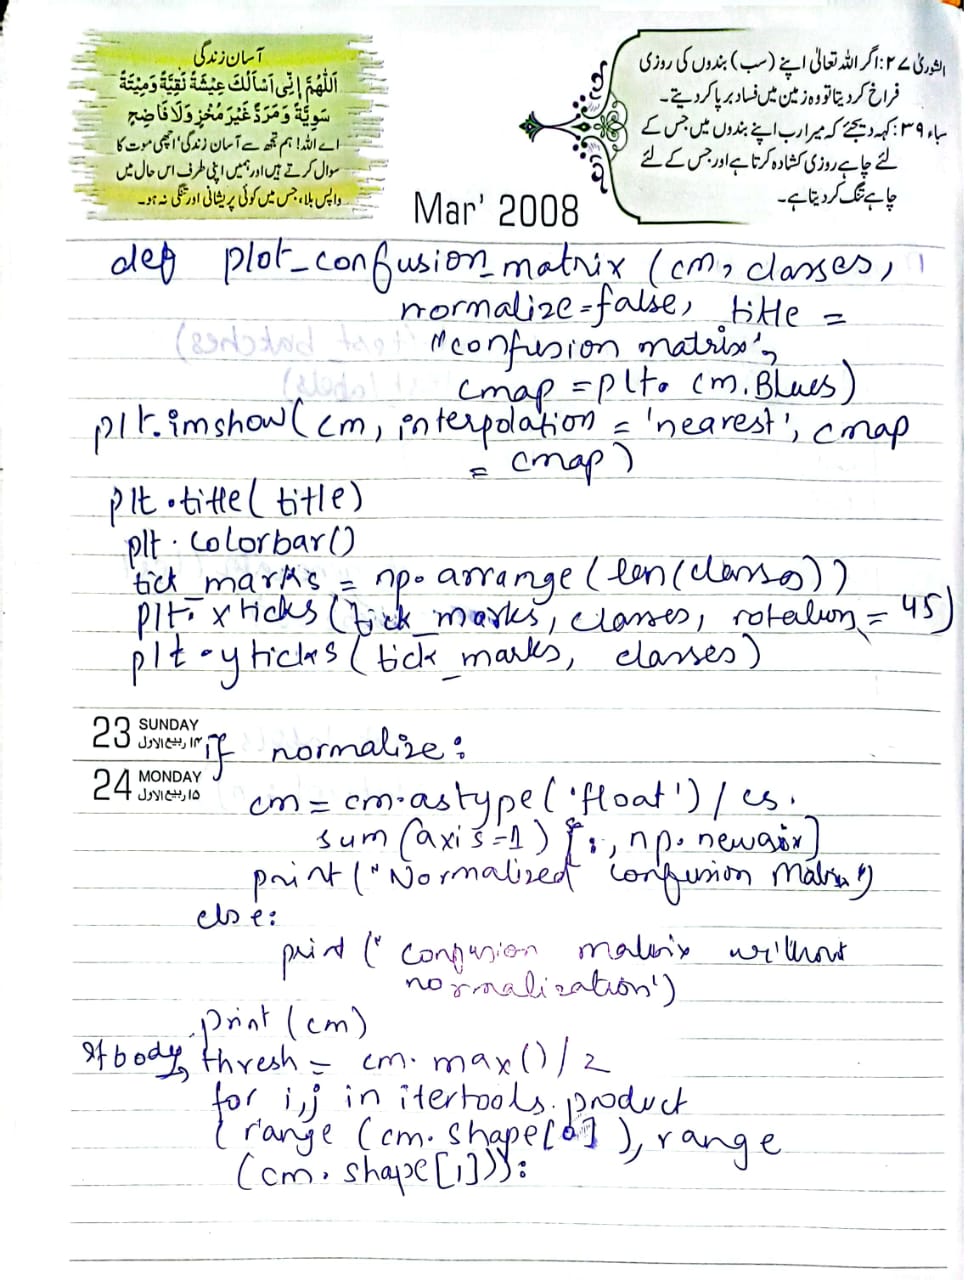 آسان زندگی
اَللّٰهُمَّ اِنِّی اَسْاَلُكَ عِيْشَةً نَقِيَّةً وَمِيْتَةً
سَوِيَّةً وَمَرَدًّا غَيْرَ مُخْزٍ وَلَا فَاضِحٍ
اے اللہ! ہم تجھ سے آسان زندگی، اچھی موت کا
سوال کرتے ہیں اور ہمیں اپنی طرف اس حال میں
واپس بلا، جس میں کوئی پریشانی اور تنگی نہ ہو۔
الشوریٰ ۲۷: اگر اللہ تعالیٰ اپنے (سب) بندوں کی روزی
فراخ کر دیتا تو وہ زمین میں فساد برپا کر دیتے۔
سباء ۳۹: کہہ دیجئے کہ میرا رب اپنے بندوں میں جس کے
لئے چاہے روزی کشادہ کرتا ہے اور جس کے لئے
چاہے تنگ کر دیتا ہے۔
Mar' 2008
def plot_confusion_matrix (cm, classes,
normalize=false, title =
"confusion matrix",
cmap = plt. cm.Blues)
plt.imshow(cm, interpolation = 'nearest', cmap
= cmap)
plt.title( title)
plt. colorbar()
tick_marks = np. arrange (len(classes))
plt. xticks (tick_marks, classes, rotation = 45)
plt.yticks ( tick_marks, classes)
23 SUNDAY
۱۴ ربیع الاول
if normalize:
24 MONDAY
۱۵ ربیع الاول
cm = cm.astype('float') / cs.
sum (axis=1) [:, np.newaix]
print ("Normalized confusion Matrix")
else:
print (" confusion matrix without
normalization")
print (cm)
If body, thresh = cm. max() / 2
for i,j in itertools. product
( range (cm. shape[0] ), range
(cm. shape [1])):